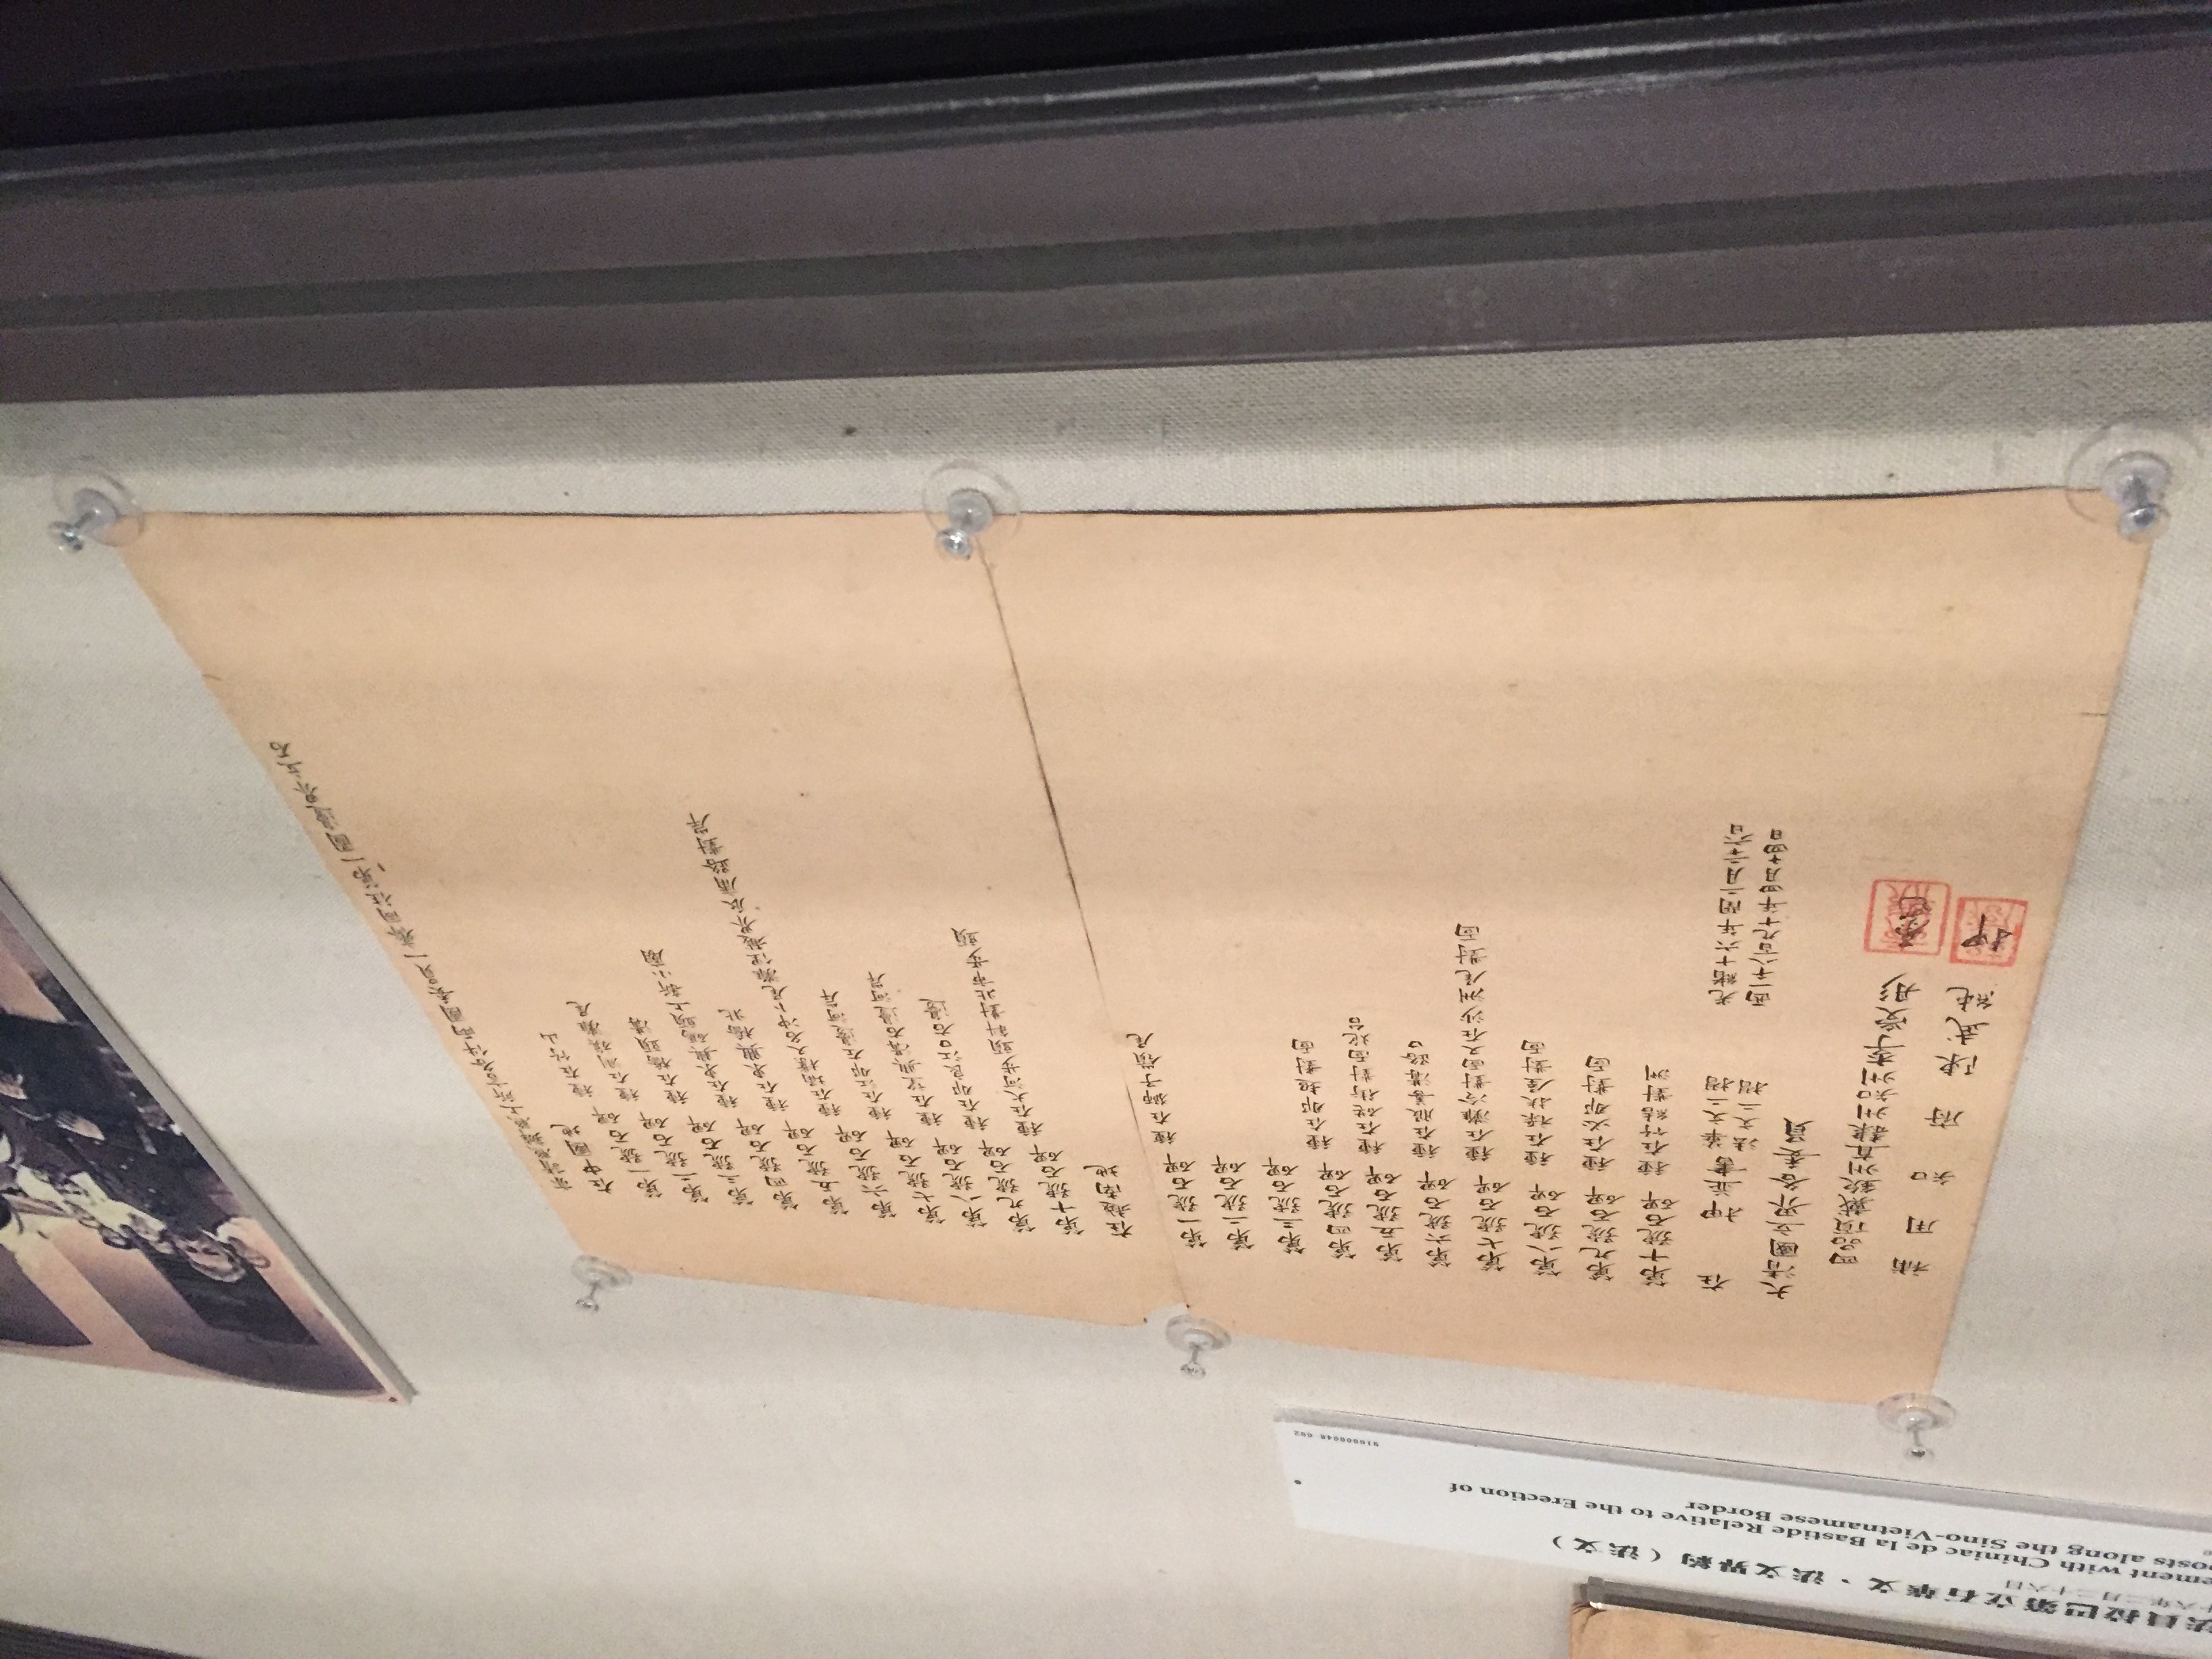 法員拉巴第立石華文、法文界約（法文）
十六年二月二十六日
ement with Chiniac de la Bastide Relative to the Erection of
posts along the Sino-Vietnamese Border
910000048 002
上所言各件兩國委員一齊同往第一圖邊界立石
在中國地
第一號石碑 種在竹山
第二號石碑 種在 旗灘尾
第三號石碑 種在橋頭溝
第四號石碑 種在東興碼頭上新小廟
第五號石碑 種在東興橋北
第六號石碑 種在 又名冲卜尾灘 界 路對岸
第七號石碑 種在江那左邊河岸
第八號石碑 種在望興溝右邊河岸
第九號石碑 種在那良江口右邊
第十號石碑 種在大河步頭斜對北市步頭
在越南地
第一號石碑 種在獅子嶺尾
第二號石碑
第三號石碑
第四號石碑 種在那超對面
第五號石碑 種在硭街對面炮台
第六號石碑 種在服善溝路口
第七號石碑 種在灘冷對面又在沙洲尾對面
第八號石碑 種在祿扶屋對面
第九號石碑 種在必那對面
第十號石碑 種在竹結對洲
在 押並書 華文二摺 法文二摺
光緒十六年閏二月二十六日
西一千八百九十年四月十四日
大清國立界各委員
四品頂戴欽州直隸州知州李受彤
補用知府陳武純 押